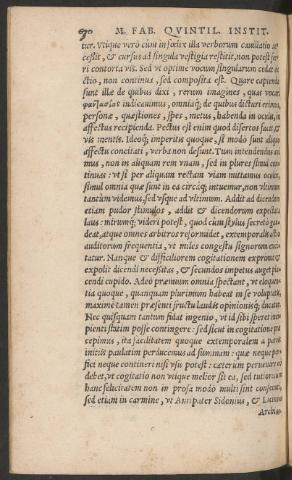 M. FAB. QVINTIL. INSTIT.
tur. Vtique verò cùm infœlix illa verborum cauillatio accessit, & cursus ad singula vestigia restitit, non potest ferri contorta vis. Sed vt optimè vocum singularum cedat electio, non continua, sed composita est. Quare capiendæ
sunt illæ de quibus dixi, rerum imagines, quas vocari
φαντασίας indicauimus, omniaq; de quibus dicturi erimus,
personæ, quæstiones, spes, metus, habenda in oculis, in
affectus recipienda. Pectus est enim quod disertos facit, &
vis mentis. Ideoq; imperitis quoque, si modò sunt aliquo
affectu concitati, verba non desunt. Tum intendendus animus, non in aliquam rem vnam, sed in plures simul continuas: vt si per aliquam rectam viam mittamus oculos,
simul omnia quæ sunt in ea circáq; intuemur, non vltimum
tantùm videmus, sed vsque ad vltimum. Addit ad dicendum
etiam pudor stimulos, addit & dicendorum expectata
laus: mirumq; videri potest, quòd cùm stylus secreto gaudeat, atque omnes arbitros reformidet, extemporalis actio
auditorum frequentia, vt miles congestu signorum excitatur. Nanque & difficiliorem cogitationem exprimit &
expolit dicendi necessitas, & secundos impetus auget placendi cupido. Adeò præmium omnia spectant, vt eloquentia quoque, quanquam plurimum habeat in se voluptatis,
maximè tamen præsenti fructu laudis opinionisq; ducatur.
Nec quisquam tantùm fidat ingenio, vt id sibi speret incipienti statim posse contingere: sed sicut in cogitatione præcepimus, ita facilitatem quoque extemporalem à paruis
initiis paulatim perducemus ad summam: quæ neque perfici neque contineri nisi vsu potest: cæterùm peruenire eò
debet, vt cogitatio non vtique melior sit ea, sed tutior: cùm
hanc felicitatem non in prosa modò multi sint consecuti,
sed etiam in carmine, vt Antipater Sidonius, & Licinius
Archias